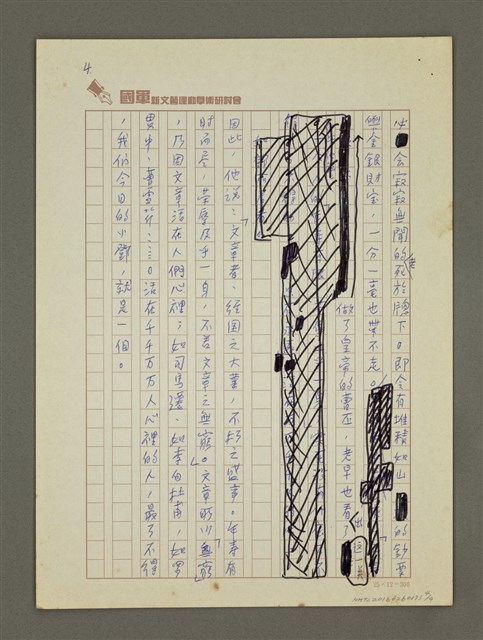 4.
國軍新文藝運動學術研討會
也會寂寂無聞的死於牖下。即令有堆積如山的鈔票
與金銀財寶,一分一毫也帶不走。
做了皇帝的曹丕,老早也看出這一點
因此,他說:「文章者,經國之大業,不朽之盛事。年壽有
時而盡,榮辱及乎一身,不若文章之無窮。」文章所以無窮
,乃因文章活在人們心裡;如司馬遷、如李白杜甫,如羅
貫中、曹雪芹……。活在千千萬萬人心裡的人,最了不得
,我們今日的小鄧,就是一個。
25×12=300